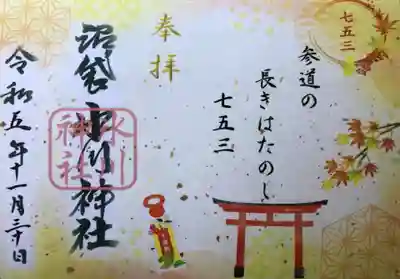 七五三
参道の
長きはたのし
七五三
奉拝
沼袋氷川神社
氷川
神社
令和五年十一月三十日